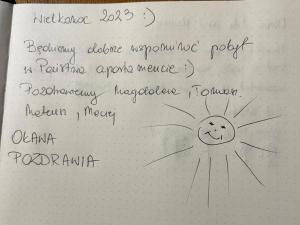 Wielkanoc 2023 :)
Będziemy dobrze wspominać pobyt
w Państwa apartamencie :)
Pozdrawiamy Magdalena, Tomasz
Mateusz, Maciej
OŁAWA
POZDRAWIA